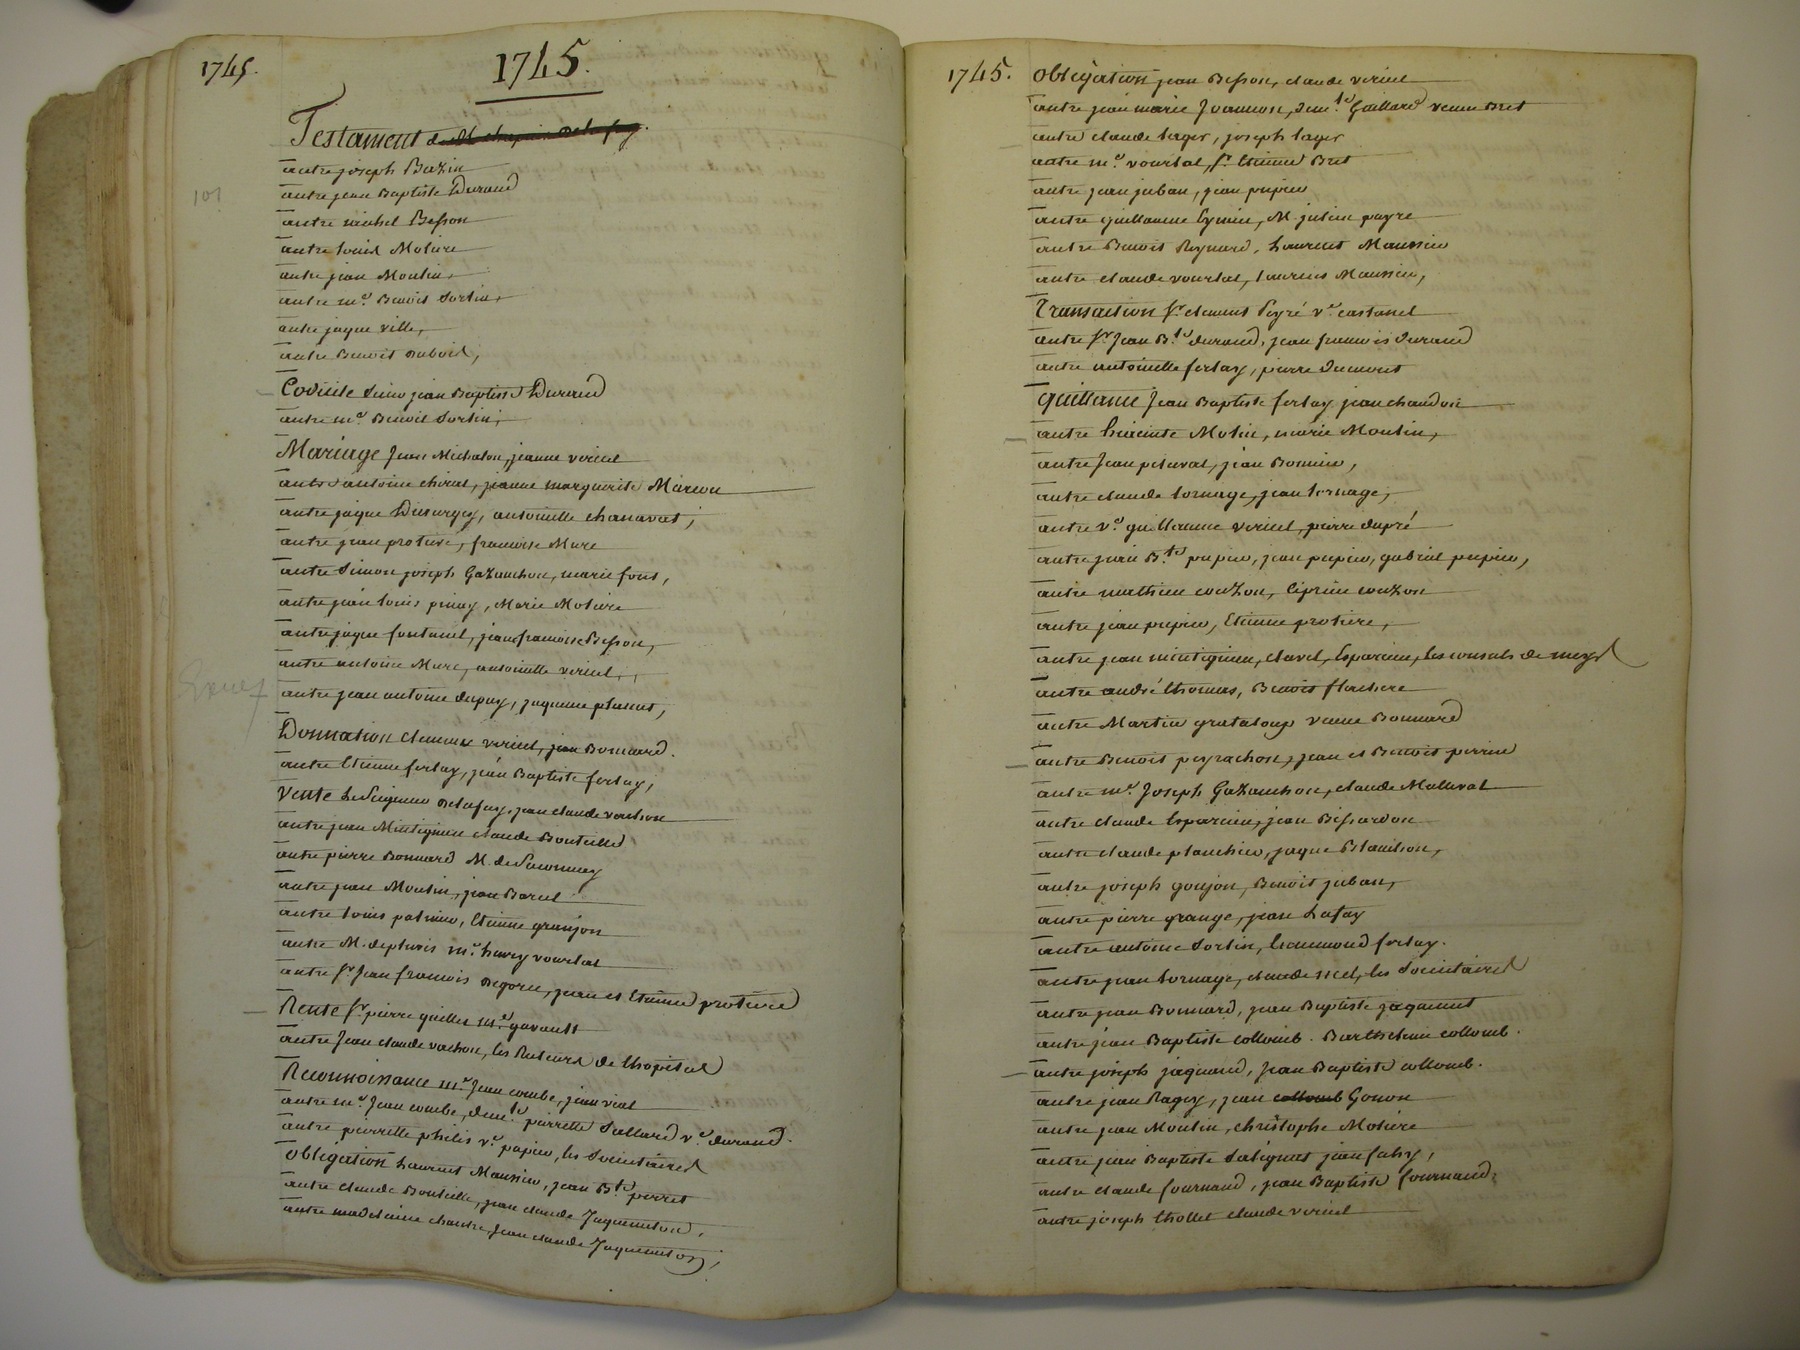 1745.
1745.
Testament
autre joseph Bazin
autre jean Baptiste Durand
101
autre michel Besson
autre louis Moliere
autre jean Moulin,
autre me. Benoit Sortin,
autre jaque ville,
autre Benoit dubois,
Codicile jean Baptiste Durand
autre me. Benoit Sortin,
Mariage Jean Michalon, jeanne vericel
autre antoine chirat, jeanne marguerite Marcou
autre jaque Desarges, antoinette chanavat,
autre jean protiere, francoise Mure
autre Simon joseph Gazanchon, marie font,
autre jean louis pinay, Marie Moliere
autre jaque fontanel, jeanfrancoise Besson,
autre antoine Mure, antoinette vericel,
autre jean antoine dupuy, jaqueme planus,
Donnation clemence vericel, jean Bonnard.
autre Etienne ferlay, jean Baptiste ferlay,
Vente Le Seigneur Delafay, jean claude
autre jean Mintigneu claude Bouteille
autre pierre Bonnard M. de
autre jean Moulin, jean
autre louis, Etienne granjon
autre M. me. vourlat
autre Sr. Jean francois Degorn, jean et Etienne protiere
Rente Sr. pierre guillet me. gavault
autre Jean claude vachon, les Recteurs de lhopital
Reconnoissance me. Jean combe, jean vial
autre me. Jean combe, demle. pierrette Sallard ve. durand.
autre pierrette philis ve. papier, les Societaires
obligation Laurent Maussier, jean Bte. perret
autre claude Bouteille, jean claude Jaquemeton,
autre madelaine chantre Jean claude Jaquemeton,
1745.
obligation jean Besson, claude vericel
autre jean marie Jvannon, demle. Gaillard veuve Bret
autre claude lager, joseph lager
autre me. vourlat, Sr. Etienne Bret
autre jean juban, jean pupier
autre guillaume Eymin, M. julien payre
autre Benoit Reynard, Laurent Maussier
autre claude vourlat, laurens Maussier,
Transaction Sr. clement Peyré ve. castanel
autre Sr. Jean Bte. durand, jean francois durand
autre antoinette ferlay, pierre dumont
quittance Jean Baptiste ferlay jean chaudon
autre hiacinte Molin, marie Moulin,
autre Jean pitaval, jean Bonnier,
autre claude tornage, jean tornage,
autre ve. guillaume vericel, pierre dupré
autre jean Bte. pupier, jean pupier, gabriel pupier,
autre mathieu couzon, Ciprien couzon
autre jean pupier, Etienne protiere,
autre jean mintigneu, clavel, Esparcieu, les consuls de meys
autre andré thomas, Benoit flachere
autre Martin grataloup veuve Bonnard
autre Benoit peyrachon, jean et Benoit perrin
autre me. Joseph Gazanchon, claude Mallaval
autre claude Esparcieu, jean Bissardon
autre claude planchier, jaque Blanchon,
autre joseph goujon, Benoit juban,
autre pierre grange, jean Lafay
autre antoine Sortin, ferlay.
autre jean tornage, claude, les Societaires
autre jean Bonnard, jean Baptiste jaquemet
autre jean Baptiste collomb. Barthelemi collomb.
autre joseph jaquand, Jean Baptiste collomb.
autre jean Ragey, jean collomb Gonon
autre jean Moulin, christophe Moliere
autre jean Baptiste Salignat jean fahy,
autre claude fournand, jean Baptiste fournand,
autre joseph thollet claude vericel